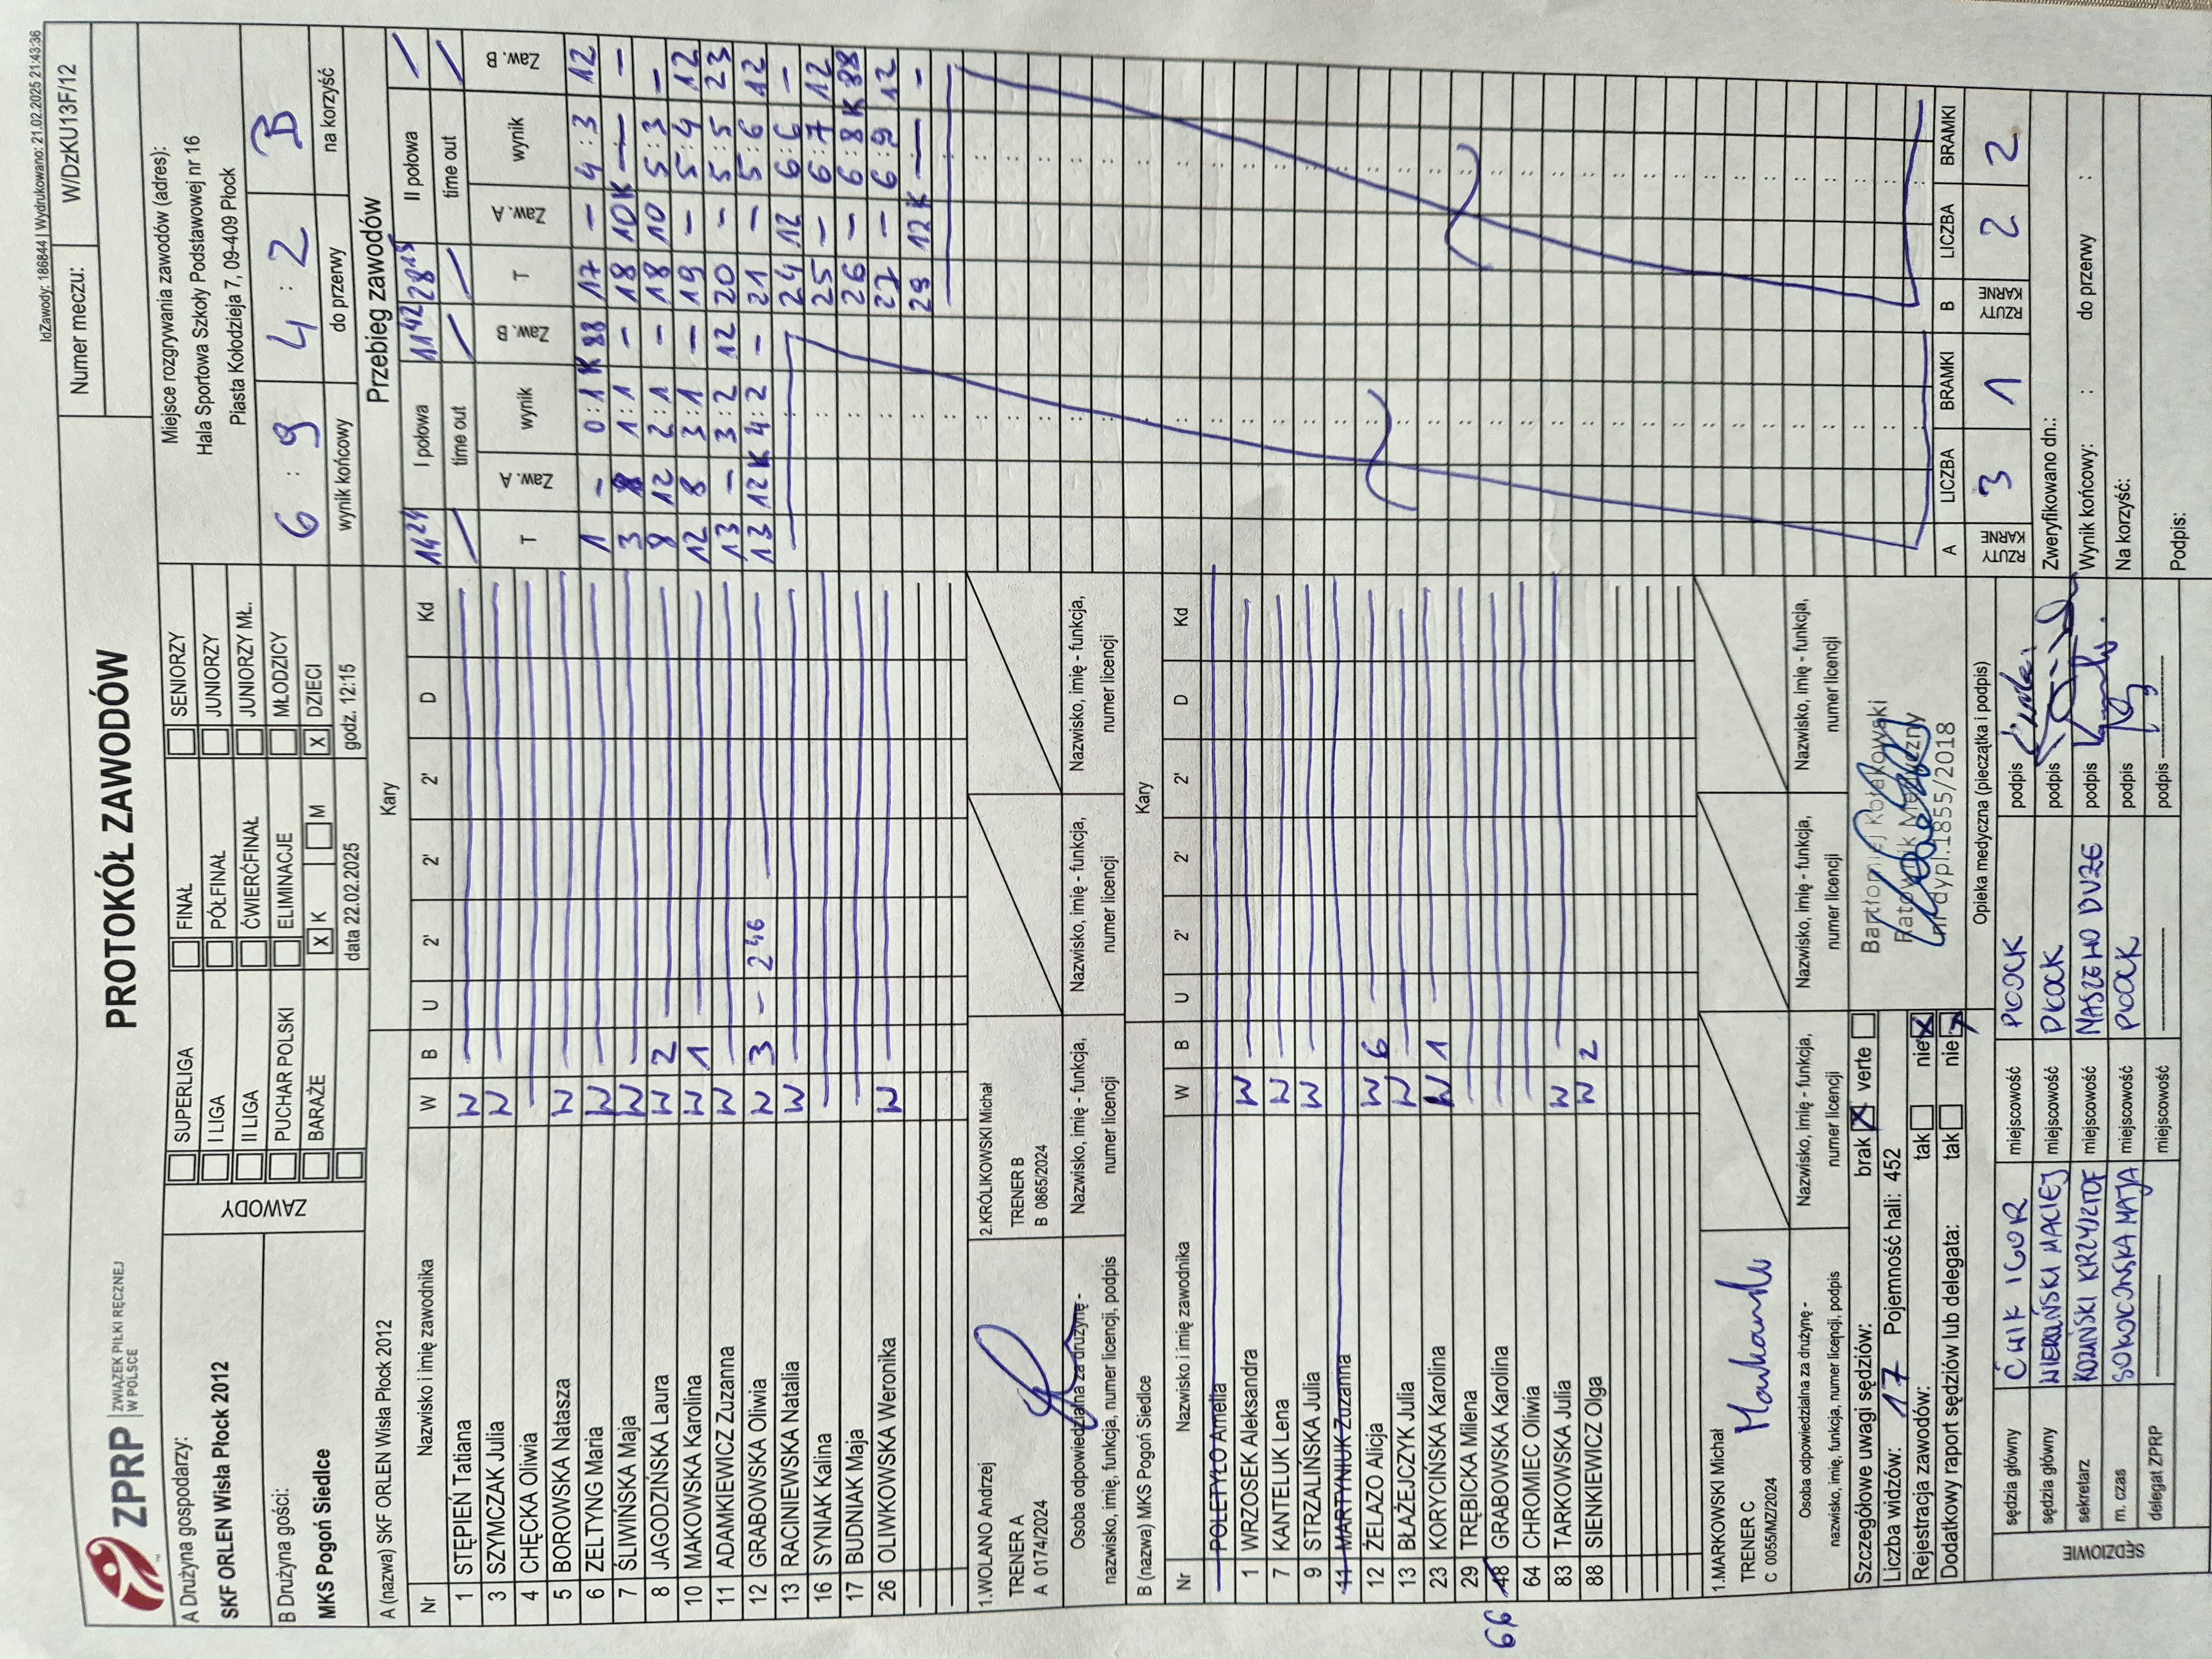 IdZawody: 186844 | Wydrukowano: 21.02.2025 21:43:36
ZPRP ZWIĄZEK PIŁKI RĘCZNEJ W POLSCE
PROTOKÓŁ ZAWODÓW
Numer meczu: W/DzKU13F/12
A Drużyna gospodarzy:
SKF ORLEN Wisła Płock 2012
B Drużyna gości:
MKS Pogoń Siedlce
ZAWODY
SUPERLIGA FINAŁ SENIORZY
I LIGA PÓŁFINAŁ JUNIORZY
II LIGA ĆWIERĆFINAŁ JUNIORZY MŁ.
PUCHAR POLSKI ELIMINACJE MŁODZICY
BARAŻE X K M X DZIECI
data 22.02.2025 godz. 12:15
Miejsce rozgrywania zawodów (adres):
Hala Sportowa Szkoły Podstawowej nr 16
Piasta Kołodzieja 7, 09-409 Płock
6 : 9 4 : 2 B
wynik końcowy do przerwy na korzyść
A (nazwa) SKF ORLEN Wisła Płock 2012 Kary
Nr Nazwisko i imię zawodnika W B U 2' 2' 2' D Kd
1 STĘPIEŃ Tatiana W
3 SZYMCZAK Julia W
4 CHĘCKA Oliwia
5 BOROWSKA Natasza W
6 ZELTYNG Maria W
7 ŚLIWIŃSKA Maja W
8 JAGODZIŃSKA Laura W 2
10 MAKOWSKA Karolina W 1
11 ADAMKIEWICZ Zuzanna W
12 GRABOWSKA Oliwia W 3 - 246
13 RACINIEWSKA Natalia W
16 SYNIAK Kalina
17 BUDNIAK Maja
26 OLIWKOWSKA Weronika W
1.WOLANO Andrzej
TRENER A
A 0174/2024
2.KRÓLIKOWSKI Michał
TRENER B
B 0865/2024
Osoba odpowiedzialna za drużynę -
nazwisko, imię, funkcja, numer licencji, podpis
Nazwisko, imię - funkcja,
numer licencji
Nazwisko, imię - funkcja,
numer licencji
Nazwisko, imię - funkcja,
numer licencji
B (nazwa) MKS Pogoń Siedlce Kary
Nr Nazwisko i imię zawodnika W B U 2' 2' 2' D Kd
POLETYŁO Amelia
1 WRZOSEK Aleksandra W
7 KANTELUK Lena W
9 STRZALIŃSKA Julia W
11 MARTYNIUK Zuzanna
12 ŻELAZO Alicja W 6
13 BŁAŻEJCZYK Julia W
23 KORYCIŃSKA Karolina W 1
29 TRĘBICKA Milena
66 48 GRABOWSKA Karolina
64 CHROMIEC Oliwia
83 TARKOWSKA Julia W
88 SIENKIEWICZ Olga W 2
1.MARKOWSKI Michał
TRENER C
C 0055/MZ/2024
Markowski
Osoba odpowiedzialna za drużynę -
nazwisko, imię, funkcja, numer licencji, podpis
Nazwisko, imię - funkcja,
numer licencji
Nazwisko, imię - funkcja,
numer licencji
Nazwisko, imię - funkcja,
numer licencji
Szczegółowe uwagi sędziów: brak X verte
Liczba widzów: 17 Pojemność hali: 452
Rejestracja zawodów: tak nie X
Dodatkowy raport sędziów lub delegata: tak nie X
Bartłomiej Kołakowski
Ratownik Medyczny
nr dypl.1855/2018
Opieka medyczna (pieczątka i podpis)
SĘDZIOWIE
sędzia główny ĆWIK IGOR miejscowość PŁOCK podpis
sędzia główny MACIEJ miejscowość PŁOCK podpis
sekretarz KOZIŃSKI KRZYSZTOF miejscowość MASZEWO DUŻE podpis
m. czas MAJA miejscowość PŁOCK podpis
delegat ZPRP miejscowość podpis
Przebieg zawodów
14 24 I połowa 11 42 28 15 II połowa
time out time out
T Zaw. A wynik Zaw. B T Zaw. A wynik Zaw. B
1 - 0 : 1 K 88 17 - 4 : 3 12
3 8 1 : 1 - 18 10 K - -
8 12 2 : 1 - 18 10 5 : 3 -
12 8 3 : 1 - 19 - 5 : 4 12
13 - 3 : 2 12 20 - 5 : 5 23
13 12 K 4 : 2 - 21 - 5 : 6 12
24 12 6 : 6 -
25 - 6 : 7 12
26 - 6 : 8 K 88
27 - 6 : 9 12
29 12 K - -
A LICZBA BRAMKI B LICZBA BRAMKI
RZUTY KARNE 3 1 RZUTY KARNE 2 2
Zweryfikowano dn.:
Wynik końcowy: : do przerwy :
Na korzyść:
Podpis: